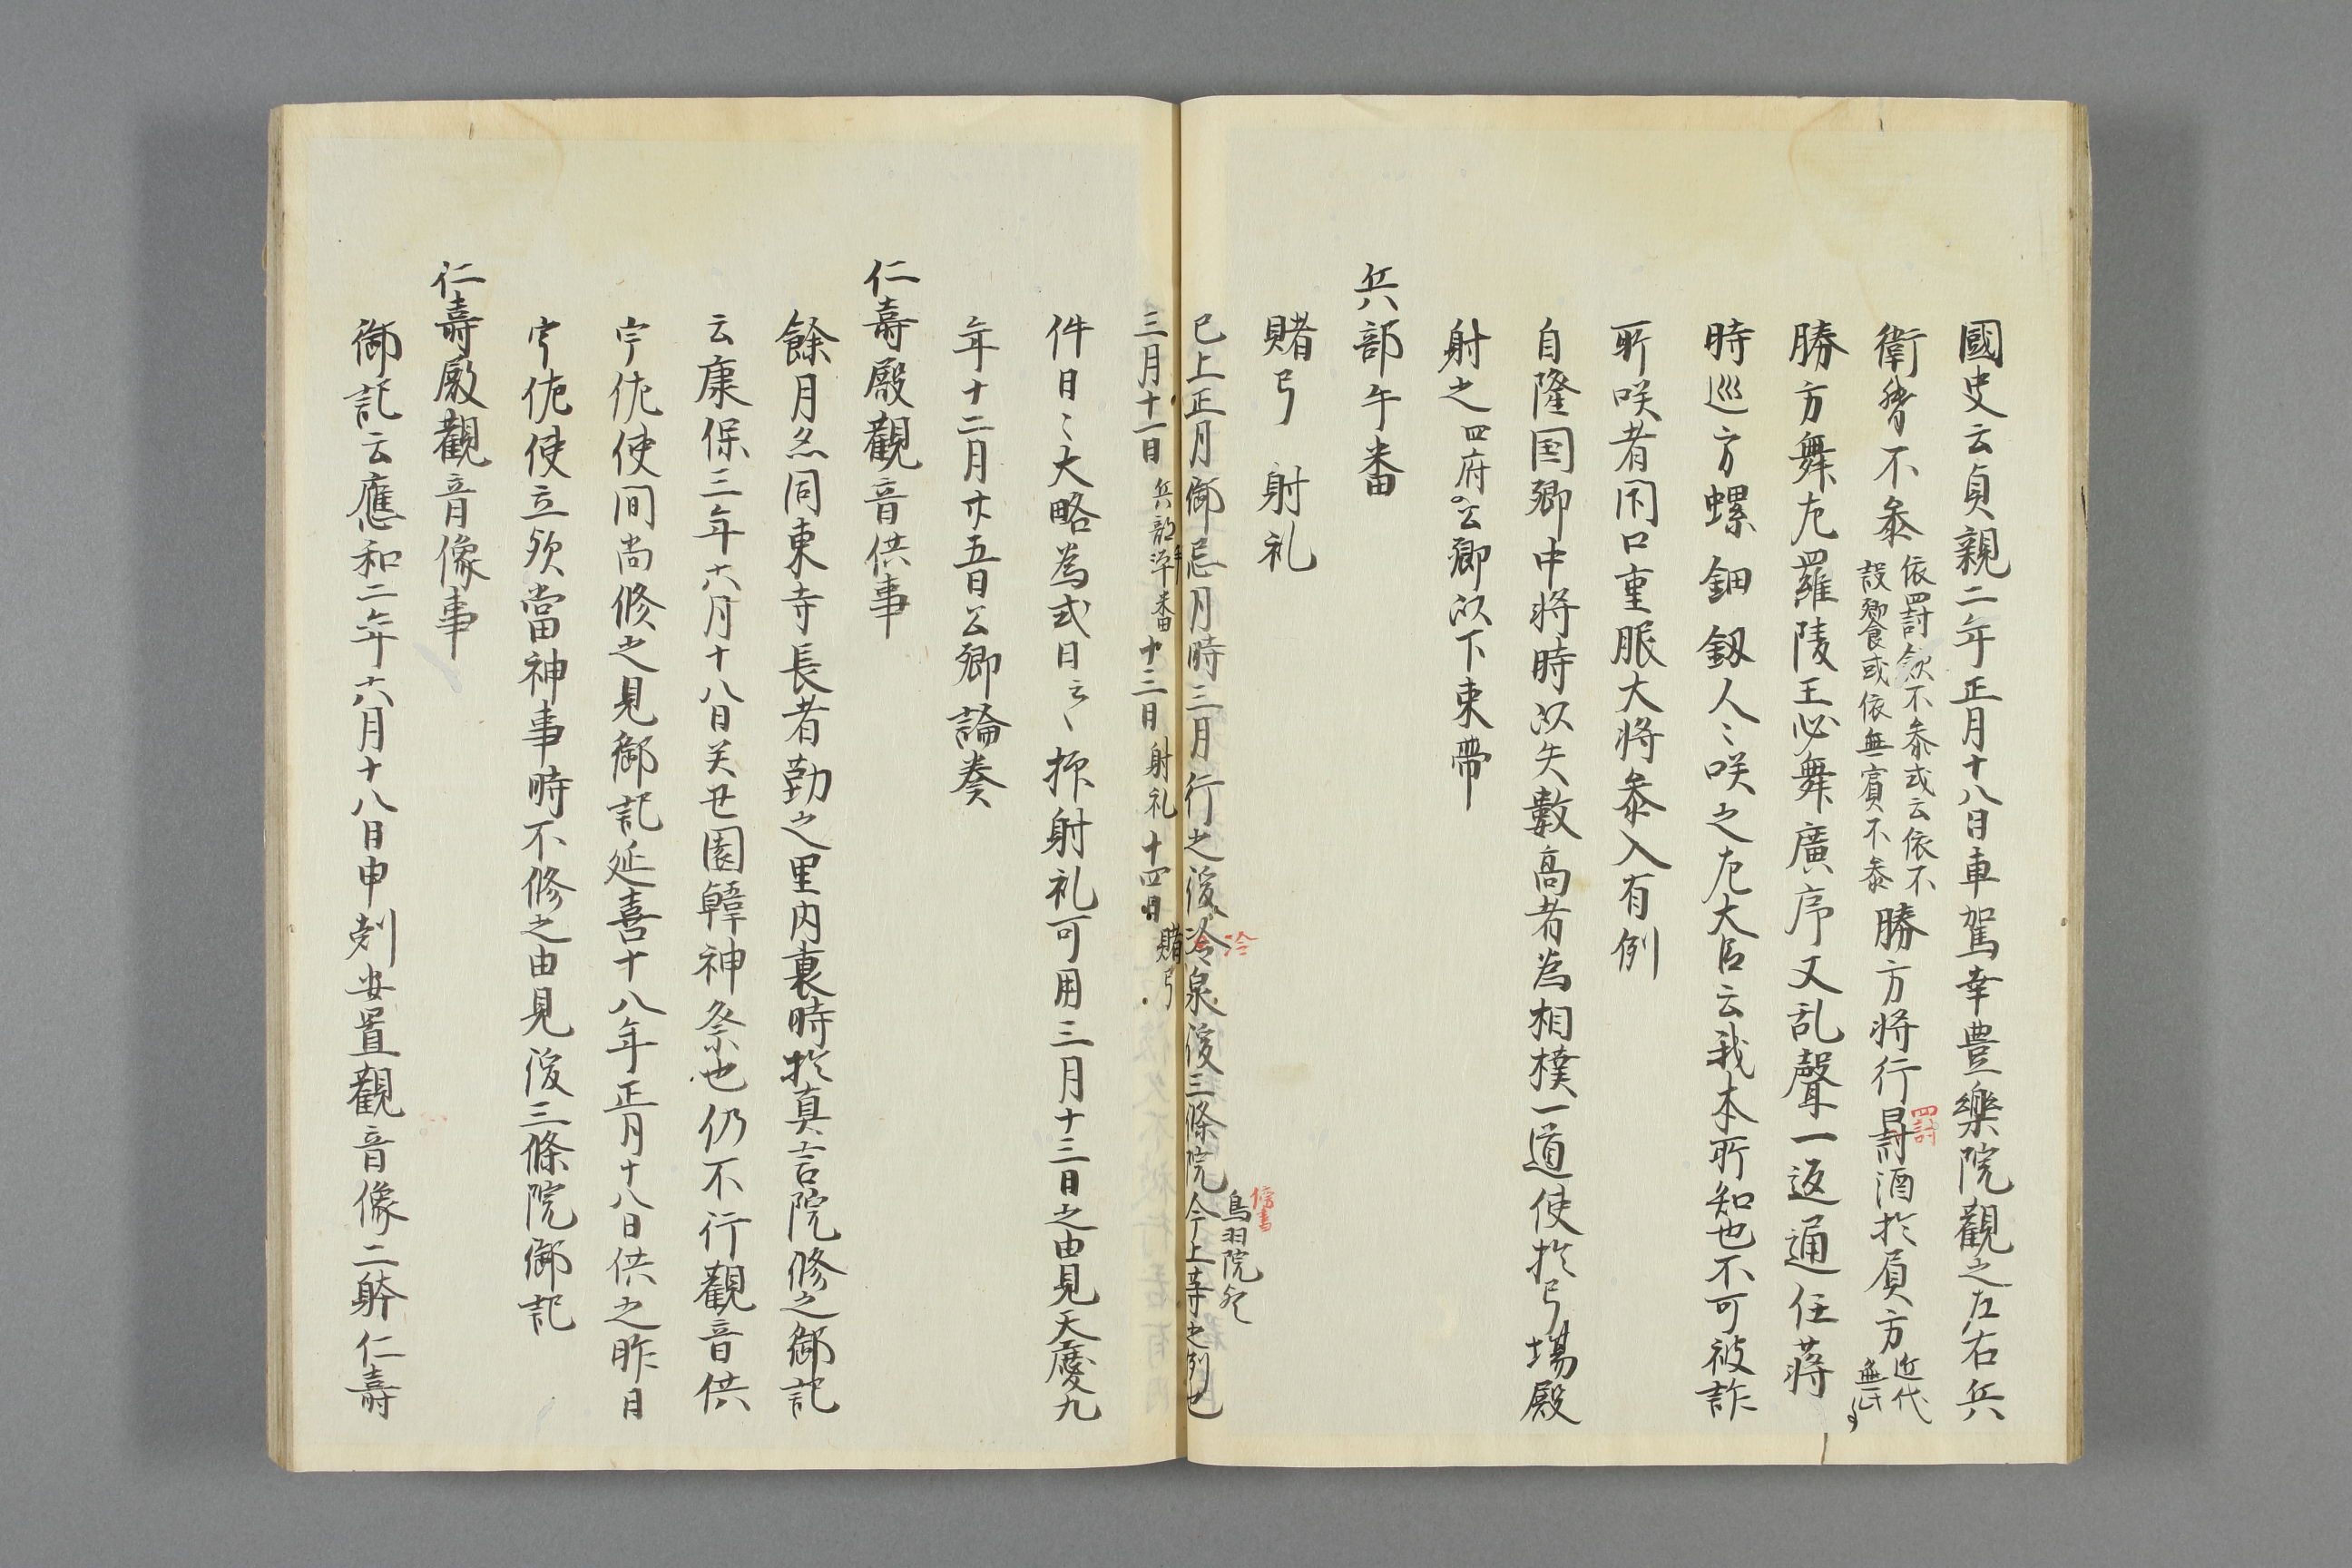 國史云貞親二年正月十八日車駕幸豊樂院觀之左右兵
衛督不参依罸飲不参或云依不設饗食或依無賓不参勝方将行罸酒於負方近代無此事
罸
勝方舞左羅陵王必舞廣序又乱聲一返通任蒋
時巡方螺鈿釼人〻咲之左大臣云我本所知也不可被詐
所咲者閇口重服大将参入有例
自隆国卿中将時以失數高者為相撲一道使於弓場殿
射之四府公卿以下束帶
兵部午番
賭弓　射礼
已上正月御忌月時三月行之後冷泉後三條院今上等之例也
冷
傍書
鳥羽院
三月十一日兵部渾番十三日射礼十四日賭弓
手
件日〻大略為式日云〻抑射礼可用三月十三日之由見天慶九
年十二月廿五日公卿論奏
仁壽殿觀音供事
餘月忽同東寺長者勤之里内裏時於真言院修之御記
云康保三年六月十八日关丑園韓神祭也仍不行觀音供
宇佐使間尚修之見御記延喜十八年正月十八日供之昨日
宇佐使立欤當神事時不修之由見後三條院御記
仁壽殿觀音像事
御記云應和二年六月十八日申剋安置觀音像二躰仁壽